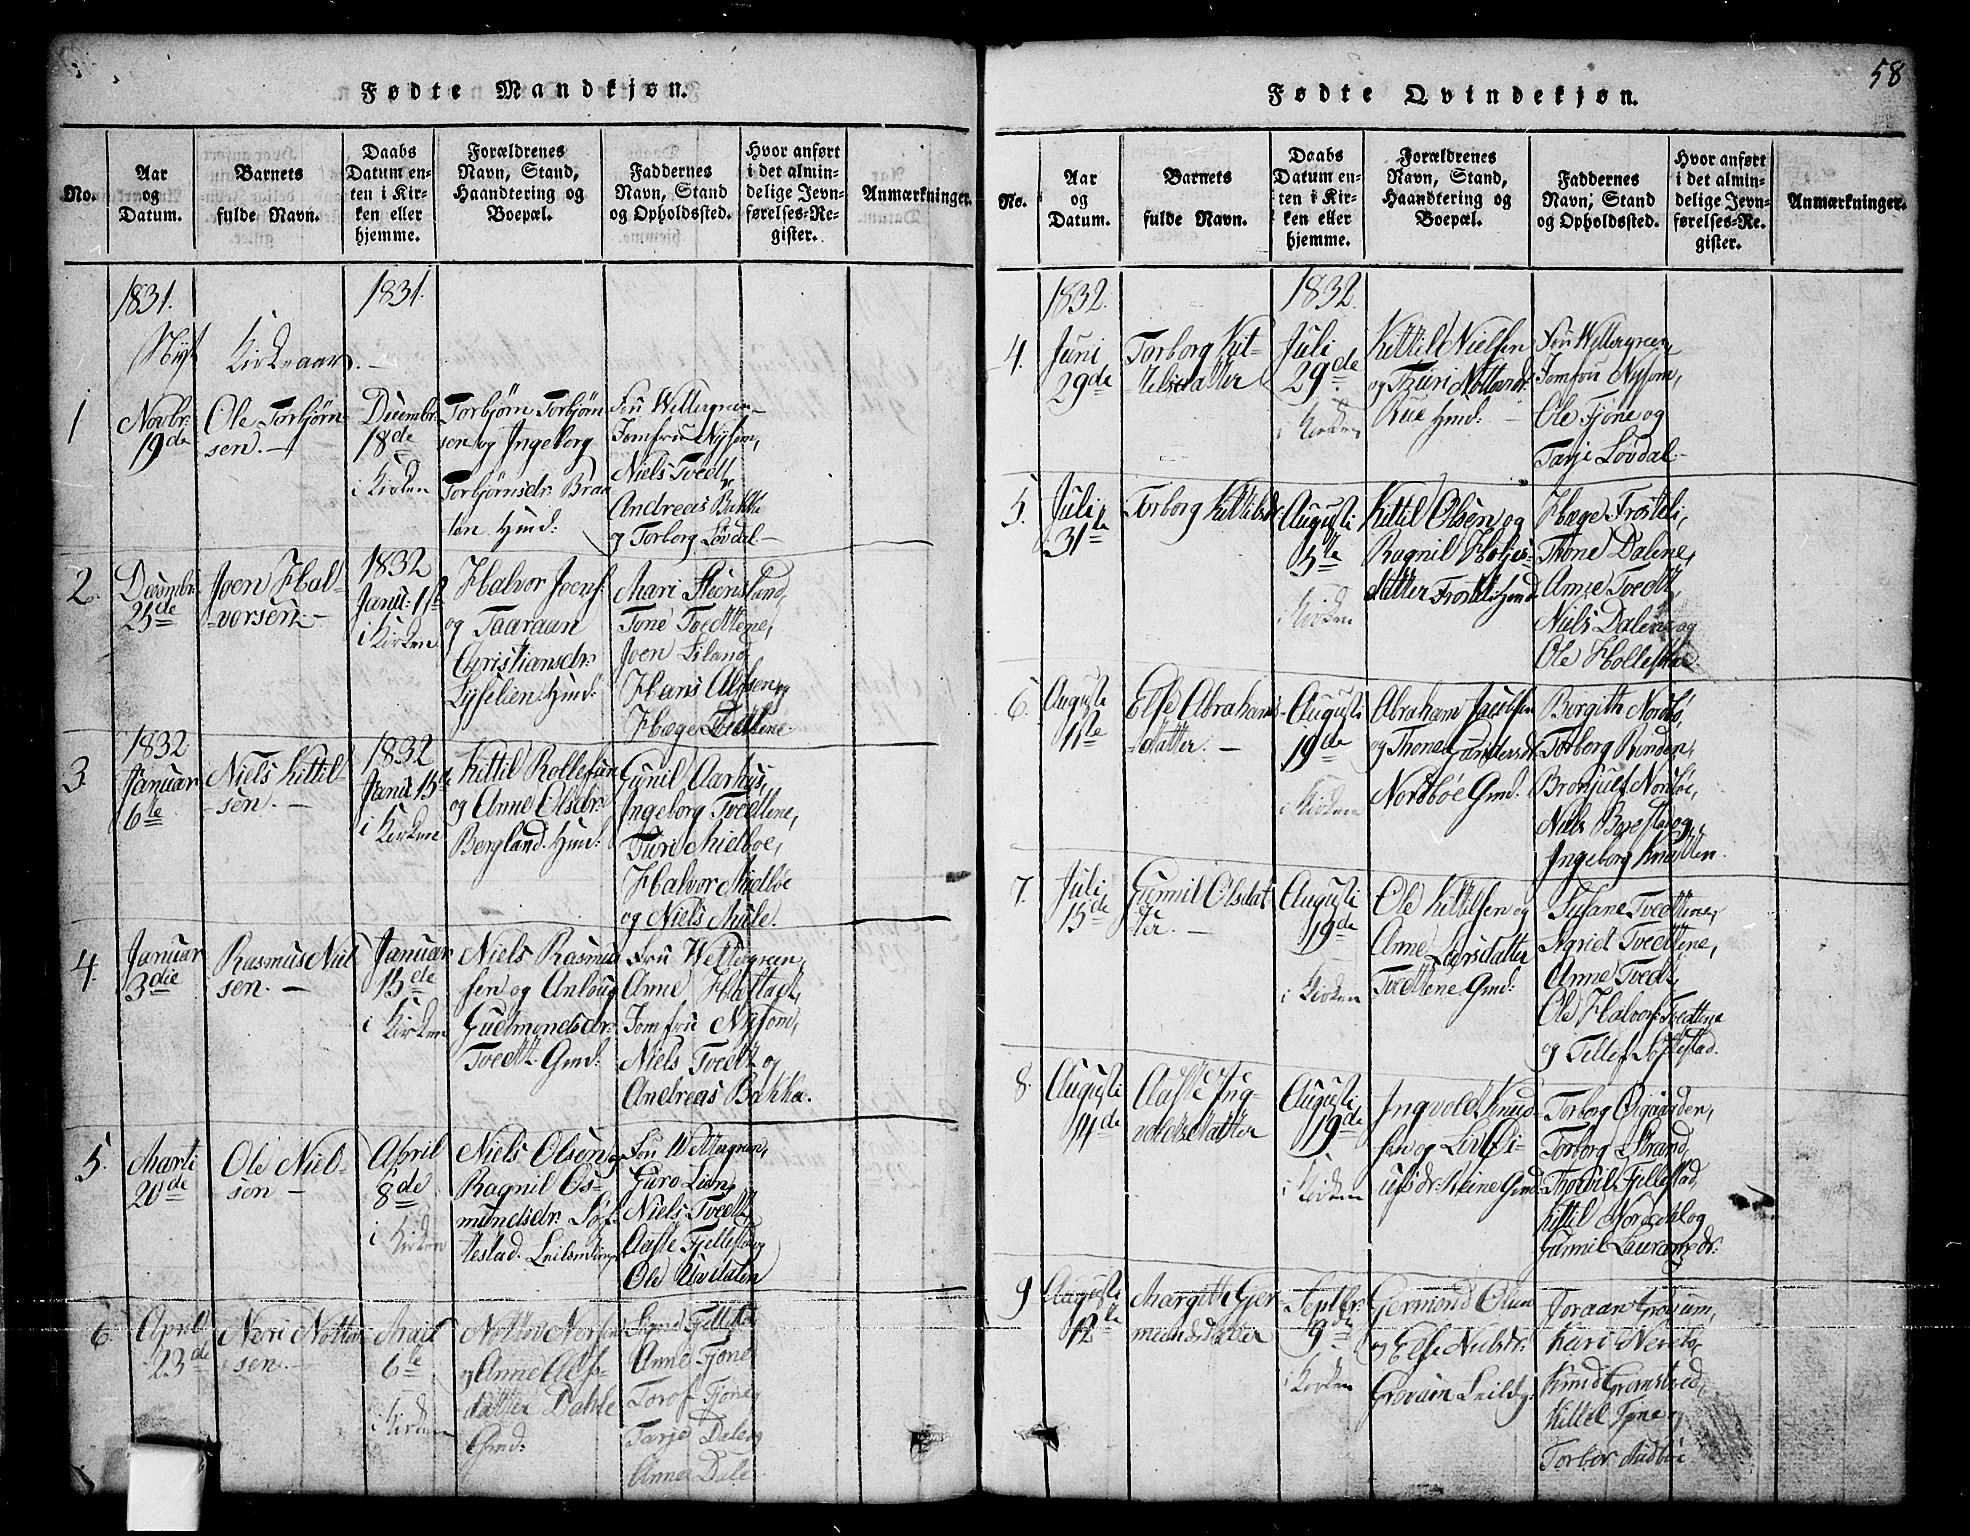 Fødte Mandkjøn.
No.
Aar
og
Datum.
Barnets
fulde Navn.
Daabs
Datum en-
ten i Kir-
ken eller
hjemme.
Forældrenes
Navn, Stand,
Haandtering og
Boepæl.
Faddernes
Navn, Stand
og Opholdssted.
Hvor anført
i det almin-
delige Jevn-
førelses-Re-
gister.
Anmærkninger.
1831.
1831.
Nyt Kirkeaar.
1
Novbr:
19de
Ole Torbjørn-
sen.
Decembr:
18de
i Kirken
Torbjørn Torbjørn
sen og Ingeborg
Torbjørnsdr: Braa
ten Hmd:
Fru Wettergreen
Jomfru Nysom,
Niels Tvedt
Andreas Bakka
og Torborg Løvdal.
2.
Decembr:
25de
Joen Hal-
vorsen.
1832
Janu: 1ste
i Kirken
Halvor Joens:
og Taaraan
Christiansdr:
Hmd:
Mari
Tone Tvedtene,
Joen
Hans Alfsen og
Hæge Tvedtene.
3.
1832
Januar
6te
Niels Kittil-
sen.
1832
Janu: 15de
i Kirken
Kittil Rollefsen
og Anne Olsdr:
Bergland Hmd:
Gunil Aarhus,
Ingeborg Tvedtene,
Turi Midboe,
Halvor Midboe
og Niels Mule.
4.
Januar
3die
Rasmus Niel
sen.
Januar
15de
i Kirken
Niels Rasmus
sen og Anlaug
Gudmundsdr:
Tvedt Gmd:
Fru Wettergreen,
Anne
Jomfru Nysom,
Niels Tvedt og
Andreas Bakka.
5.
Marti
20de
Ole Niel-
sen
April
8de
i Kirken
Niels Olsen og
Ragnil Os-
mundsdr:
Fru Wettergreen,
Guro Lien,
Niels Tvedt,
Aaste
Ole Uvdalen
6.
April
23de
Neri Notto
sen.
Mai
6te
i Kirken
Nottov Nersen
og Anne Alfs-
datter Dahle
Gmd:
Anne Fjone
Torof Fjone
Tarje Dale og
Anne Dale.
58
Fødte Qvindekjøn.
No.
Aar
og
Datum.
Barnets
fulde Navn.
Daabs
Datum en-
ten i Kir-
ken eller
hjemme.
Forældrenes
Navn, Stand,
Haandtering og
Boepæl.
Faddernes
Navn, Stand
og Opholdssted.
Hvor anført
i det almin-
delige Jevn-
førelses-Re-
gister.
Anmærkninger.
1832.
1832.
4.
Juni
29de
Torborg Kit-
telsdatter
Juli
29de
i Kirken
Kittil Nielsen
og Thuri
Rue Hmd:
Fru Wettergreen,
Jomfru Nysom,
Ole Fjone og
Tarje Løvdal
5.
Juli
31te
Torborg Kittilsdr
Augusti
5te
i Kirken
Kittil Olsen og
Ragnil
datter Frosteli Hmd
Hæge Frosteli,
Thone Dalene,
Anne Tvedt,
Niels Dalene og
Ole
6.
Augusti
11te
Else Abrahams-
datter.
Augusti
19de
i Kirken
Abraham
og Thone Gundersdr
Nordbøe Gmd:
Borgith Nordbø,
Torborg Rinden,
Bronjulf Nordbøe,
Niels
Ingeborg Knutten.
7.
Juli
15de
Gunnil Olsdat
ter.
Augusti
19de
i Kirken
Ole Kittilsen og
Anne Larsdatter
Tvedtene Gmd:
Susane Tvedtene,
Sigrid Tvedtene,
Anne Tvedt,
Ole Halvors: Tvedtene
og Tellef
8.
Augusti
14de
Aaste Ing-
voldsdatter
Augusti
19de
i Kirken
Ingvold Knud-
sen og Liv
Gmd:
Torborg
Torborg Strand,
Kittil
Gunnil
9
Augusti
12te
Margith Gjer
mundsdatter
Septbr:
9de
i Kirken
Germond Olsen
og Else Nielsdr:
Grovum
Joraan Grovum,
Kari
Knud Grimstved,
Kittel Fjone og
Torbor